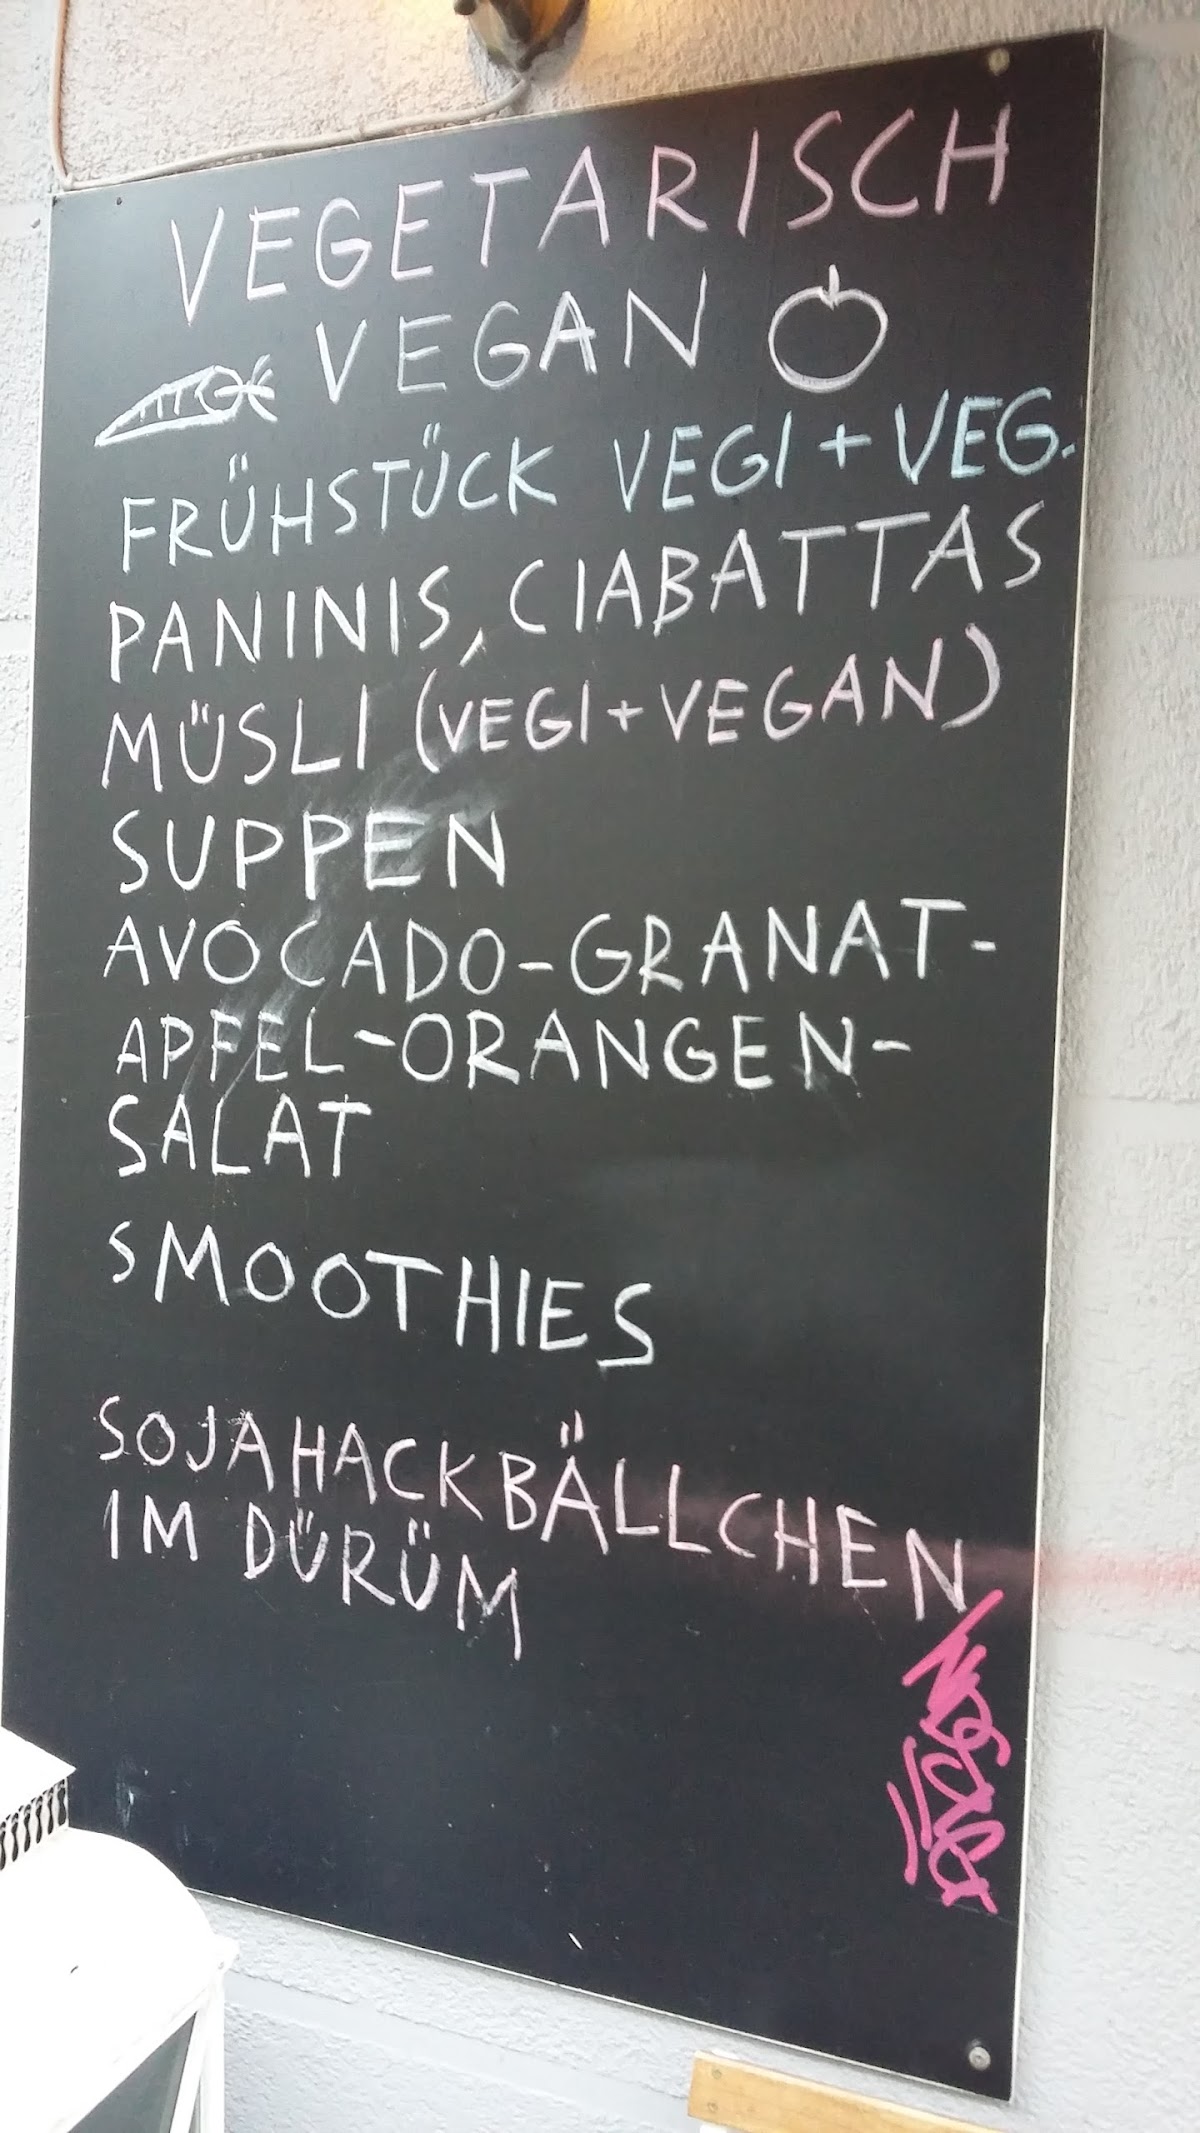 VEGETARISCH
VEGAN
FRÜHSTÜCK VEGI + VEG.
PANINIS, CIABATTAS
MÜSLI (VEGI + VEGAN)
SUPPEN
AVOCADO-GRANAT-
APFEL-ORANGEN-
SALAT
SMOOTHIES
SOJAHACKBÄLLCHEN
IM DÜRÜM